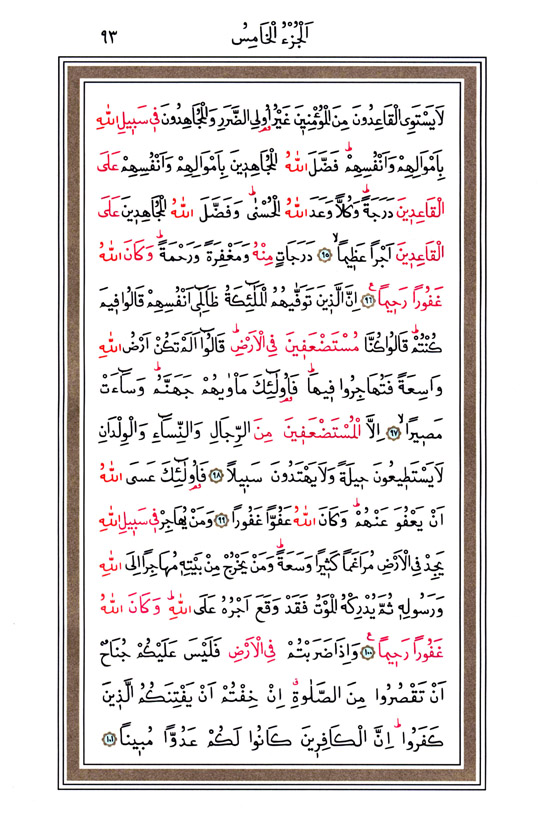 اَلْجُزْءُ الْخَامِسُ ٩٣
لَا يَسْتَوِى الْقَاعِدُونَ مِنَ الْمُؤْمِنٖينَ غَيْرُ اُو۬لِى الضَّرَرِ وَالْمُجَاهِدُونَ فٖى سَبٖيلِ اللّٰهِ
بِاَمْوَالِهِمْ وَاَنْفُسِهِمْؕ فَضَّلَ اللّٰهُ الْمُجَاهِدٖينَ بِاَمْوَالِهِمْ وَاَنْفُسِهِمْ عَلَى
الْقَاعِدٖينَ دَرَجَةًؕ وَكُلًّا وَعَدَ اللّٰهُ الْحُسْنٰىؕ وَفَضَّلَ اللّٰهُ الْمُجَاهِدٖينَ عَلَى
الْقَاعِدٖينَ اَجْرًا عَظٖيمًاۙ ﴿٩٥﴾ دَرَجَاتٍ مِنْهُ وَمَغْفِرَةً وَرَحْمَةًؕ وَكَانَ اللّٰهُ
غَفُورًا رَحٖيمًاࣖ ﴿٩٦﴾ اِنَّ الَّذٖينَ تَوَفّٰيهُمُ الْمَلٰٓئِكَةُ ظَالِمٖٓى اَنْفُسِهِمْ قَالُوا فٖيمَ
كُنْتُمْؕ قَالُوا كُنَّا مُسْتَضْعَفٖينَ فِى الْاَرْضِؕ قَالُٓوا اَلَمْ تَكُنْ اَرْضُ اللّٰهِ
وَاسِعَةً فَتُهَاجِرُوا فٖيهَاؕ فَاُو۬لٰٓئِكَ مَاْوٰيهُمْ جَهَنَّمُؕ وَسَٓاءَتْ
مَصٖيرًاۙ ﴿٩٧﴾ اِلَّا الْمُسْتَضْعَفٖينَ مِنَ الرِّجَالِ وَالنِّسَٓاءِ وَالْوِلْدَانِ
لَا يَسْتَطٖيعُونَ حٖيلَةً وَلَا يَهْتَدُونَ سَبٖيلًا ﴿٩٨﴾ فَاُو۬لٰٓئِكَ عَسَى اللّٰهُ
اَنْ يَعْفُوَ عَنْهُمْؕ وَكَانَ اللّٰهُ عَفُوًّا غَفُورًا ﴿٩٩﴾ وَمَنْ يُهَاجِرْ فٖى سَبٖيلِ اللّٰهِ
يَجِدْ فِى الْاَرْضِ مُرَاغَمًا كَثٖيرًا وَسَعَةًؕ وَمَنْ يَخْرُجْ مِنْ بَيْتِهٖ مُهَاجِرًا اِلَى اللّٰهِ
وَرَسُولِهٖ ثُمَّ يُدْرِكْهُ الْمَوْتُ فَقَدْ وَقَعَ اَجْرُهُ عَلَى اللّٰهِؕ وَكَانَ اللّٰهُ
غَفُورًا رَحٖيمًاࣖ ﴿١٠٠﴾ وَاِذَا ضَرَبْتُمْ فِى الْاَرْضِ فَلَيْسَ عَلَيْكُمْ جُنَاحٌ
اَنْ تَقْصُرُوا مِنَ الصَّلٰوةِۗ اِنْ خِفْتُمْ اَنْ يَفْتِنَكُمُ الَّذٖينَ
كَفَرُواؕ اِنَّ الْكَافِرٖينَ كَانُوا لَكُمْ عَدُوًّا مُبٖينًا ﴿١٠١﴾